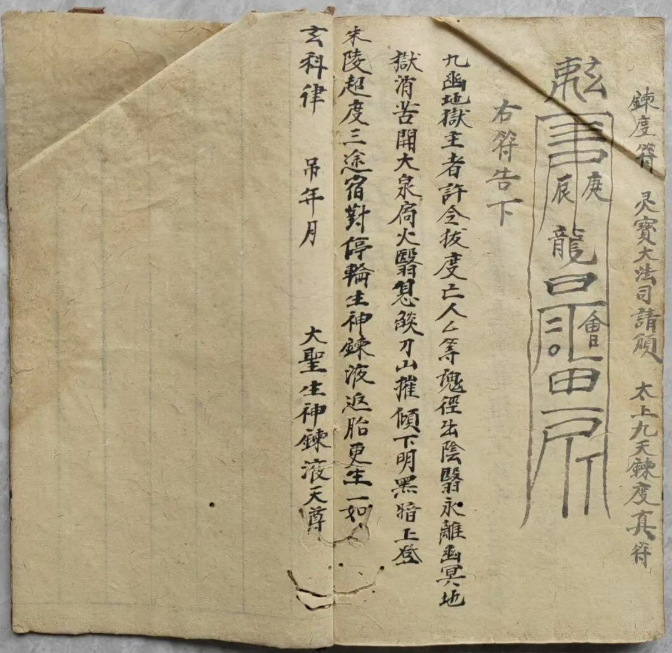 鍊度符 灵寳大法司請頒 太上九天鍊度真符
玄
庚
辰
龍
會
右符告下
九幽地獄主者許令拔度亡人厶等魂徑出陰翳永離幽冥地
獄消苦開大泉扃火翳息燄刀山摧傾下明黑暗上登
朱陵超度三途宿對停輪生神鍊液返胎更生一如
玄科律 吊年月 大聖生神鍊液天尊